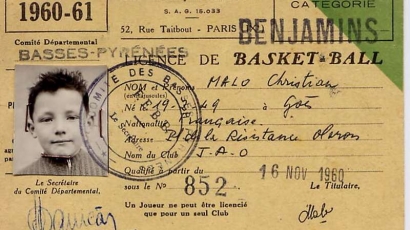 1960-61
S. A. G. 15.033
CATÉGORIE
52, Rue Taitbout - PARIS
BENJAMINS
Comité Départemental
BASSES-PYRÉNÉES
LICENCE DE BASKET-BALL
NOM et Prénoms MALO Christian
Né le 19 49 à
Nationalité Française
Adresse de la Résistance Oloron
Nom du Club J.A.O
Qualifié à partir du 16 NOV 1960
Le Secrétaire sous le N° 852 Le Titulaire,
du Comité Départemental,
Un Joueur ne peut être licencié
que pour un seul Club